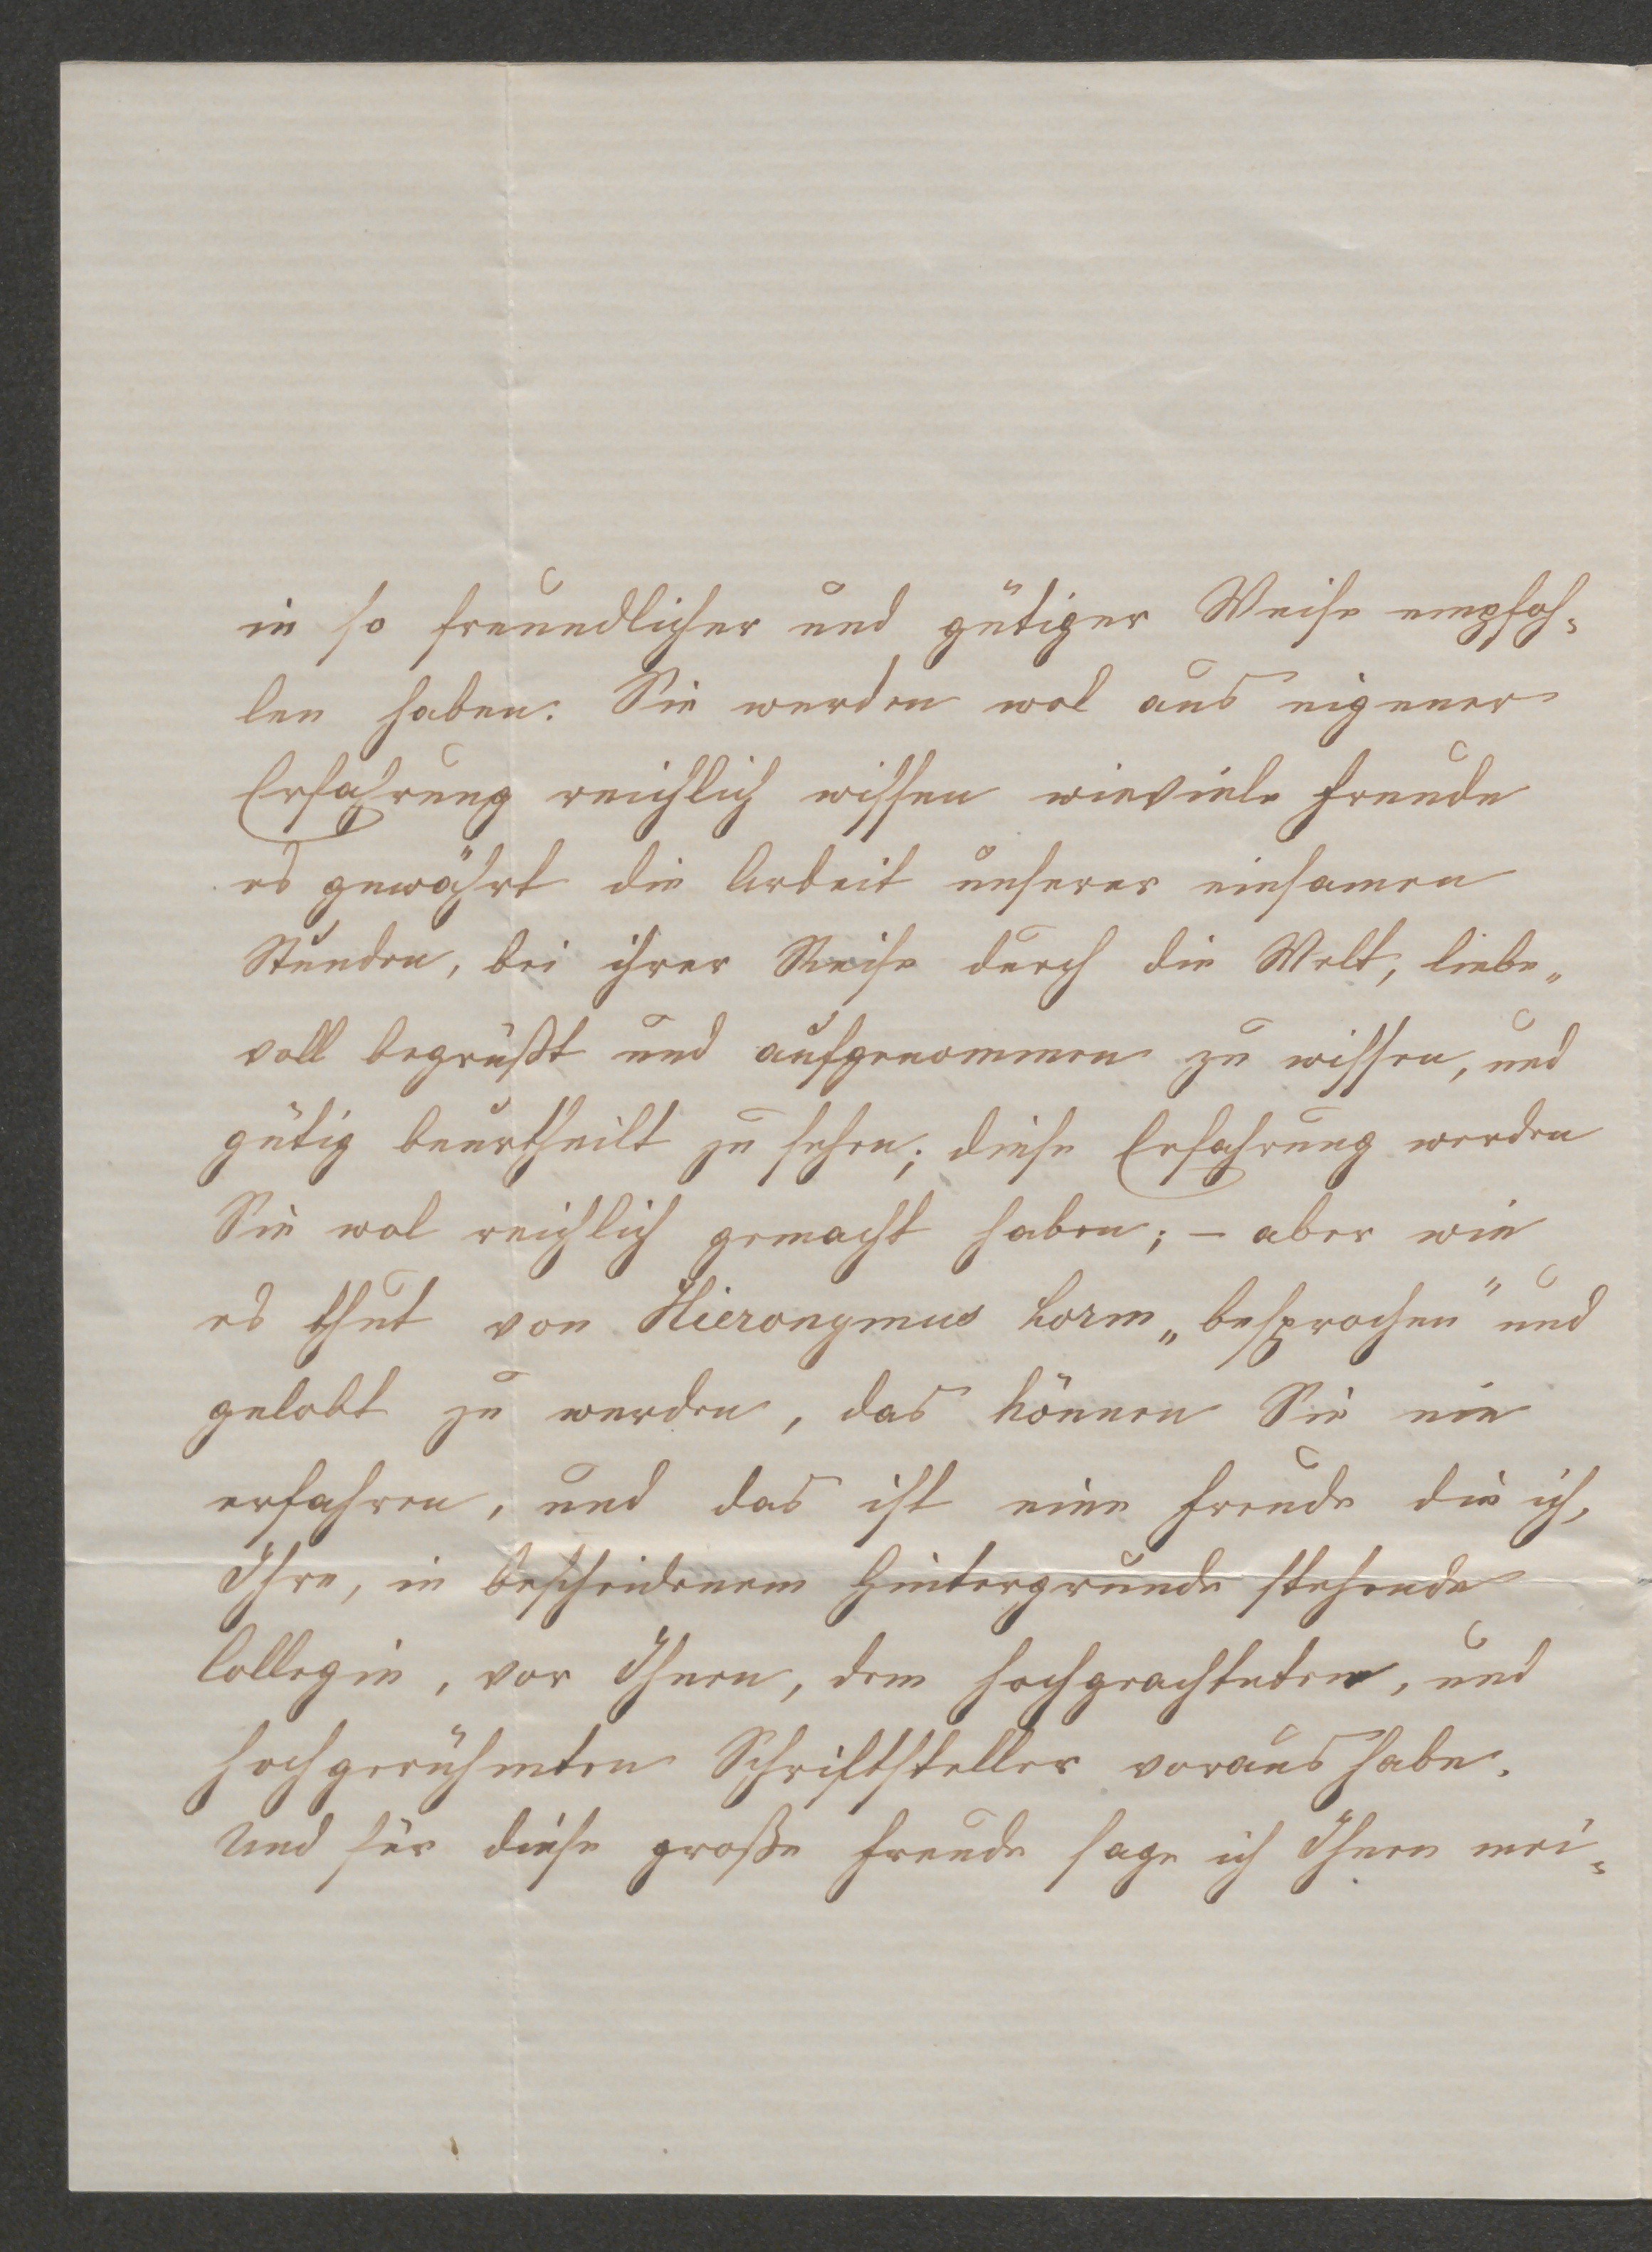 in so freundlicher und gütiger Weise empfoh-
len haben. Sie werden wol aus eigener
Erfahrung reichlich wissen wieviele Freude
es gewährt die Arbeit unserer einsamen
Stunden, bei ihrer Reise durch die Welt, liebe-
voll begrüßt und aufgenommen zu wissen, und
gütig beurtheilt zu sehen; diese Erfahrung werden
Sie wol reichlich gemacht haben; – aber wie
es thut von Hieronymus Lorm „besprochen" und
gelobt zu werden, das können Sie nie
erfahren, und das ist eine Freude die ich,
Ihre, in bescheidenem Hintergrunde stehende
Collegin, vor Ihnen, dem hochgeachteten, und
hochgerühmten Schriftsteller voraus habe.
Und für diese große Freude sage ich Ihnen mei-